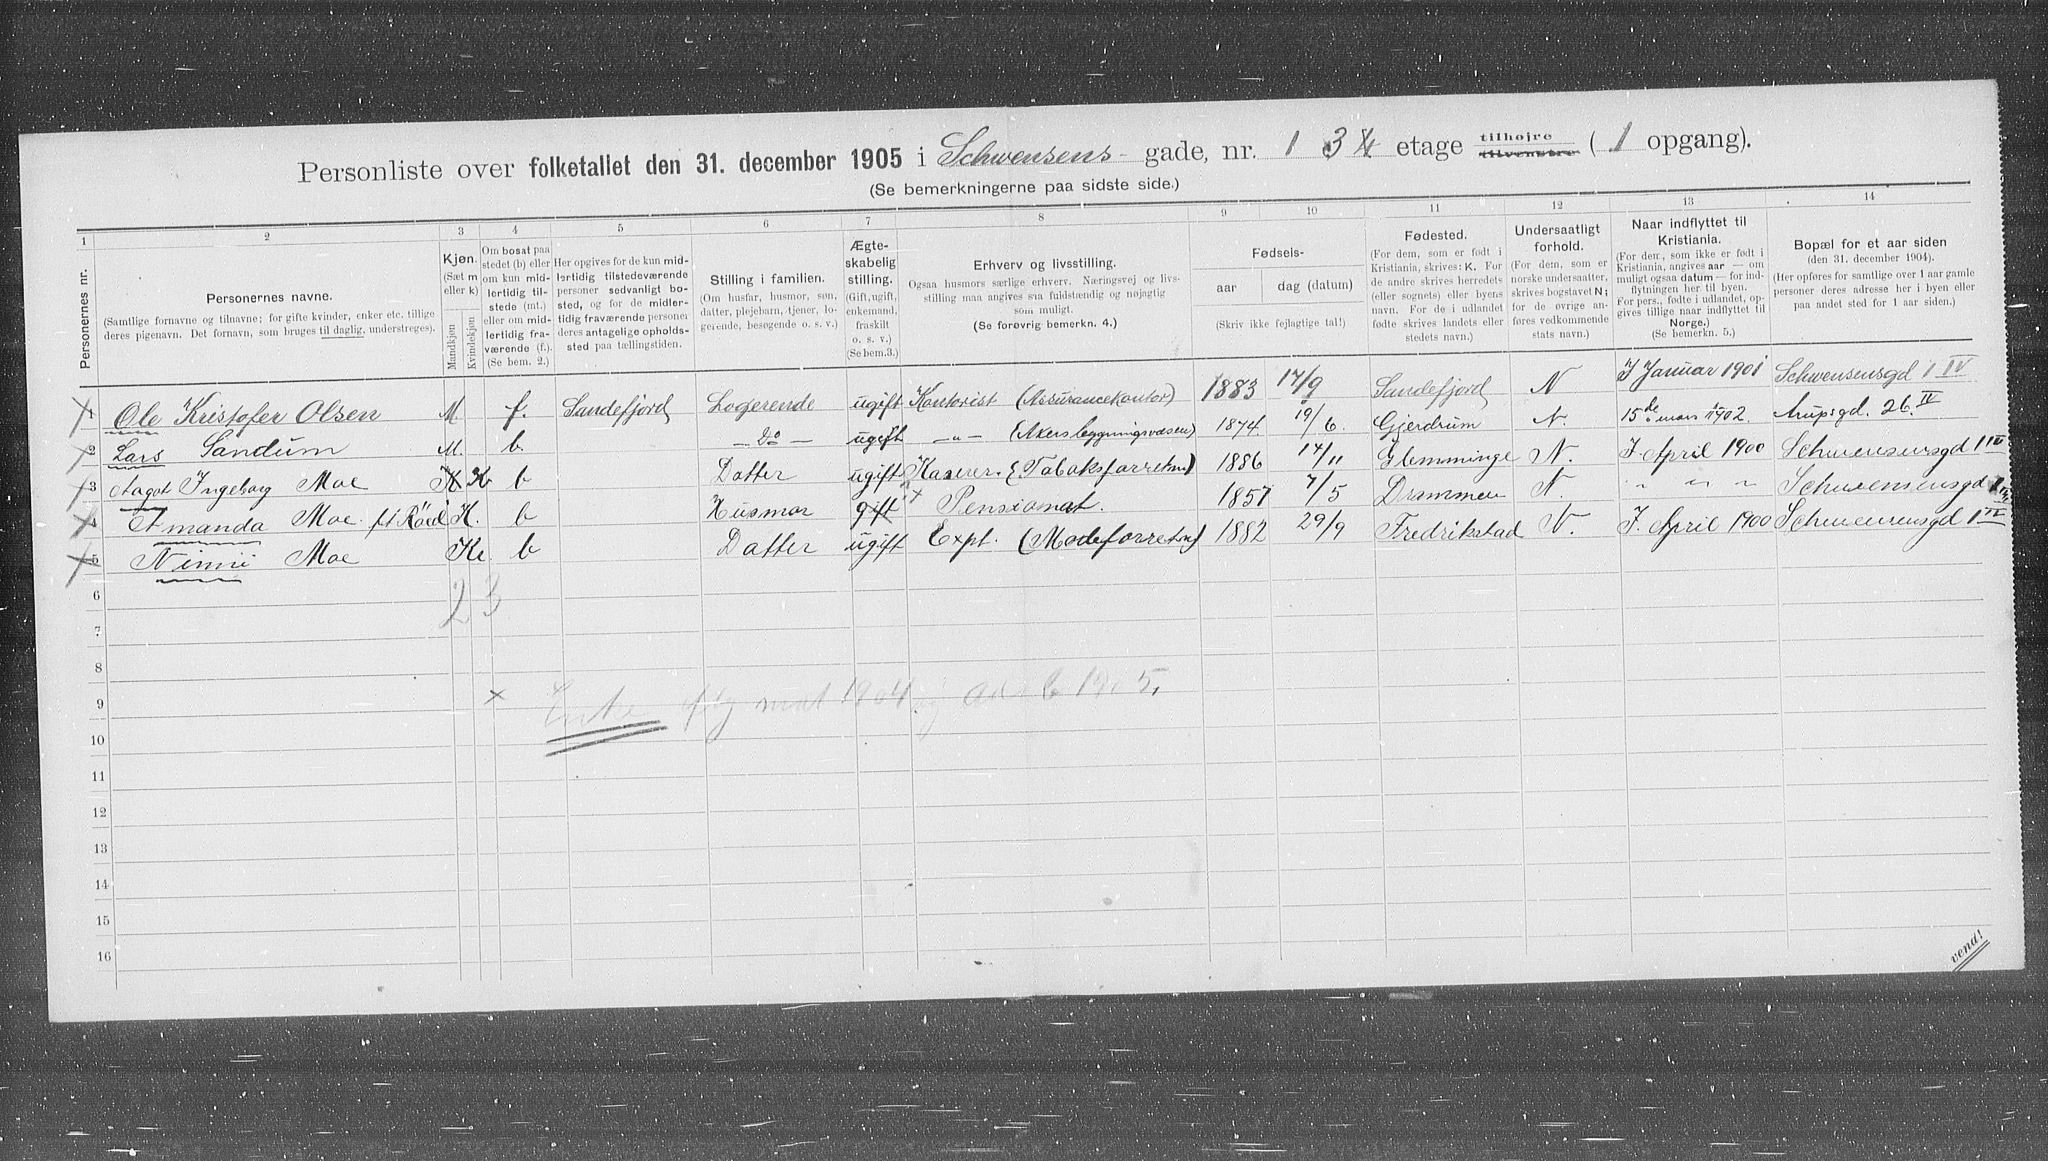 Personliste over folketallet den 31. december 1905 i Schwensens- gade, nr. 1 3 4 etage tilhøjre tilvenstre ( 1 opgang).
(Se bemerkningerne paa sidste side.)
1 2 3 4 5 6 7 8 9 10 11 12 13 14
Personernes nr.
Personernes navne.
(Samtlige fornavne og tilnavne; for gifte kvinder, enker etc. tillige deres pigenavn. Det fornavn, som bruges til daglig, understreges).
Kjøn.
(Sæt m eller k)
Mandkjøn
Kvindekjøn
Om bosat paa stedet (b) eller om kun midlertidig tilstede (mt.) eller om midlertidig fraværende (f.). (Se bem. 2.)
Her opgives for de kun midlertidig tilstedeværende personer sedvanlig bosted, og for de midlertidig fraværende personer deres antagelige opholdssted paa tællingstiden.
Stilling i familien.
(Om husfar, husmor, søn, datter, plejebarn, tjener, logerende, besøgende o. s. v.)
Ægteskabelig stilling.
(Gift, ugift, enkemand, fraskilt o. s. v.)
(Se bem. 3.)
Erhverv og livsstilling.
Ogsaa husmors særlige erhverv. Næringsvej og livsstilling maa angives saa fuldstændig og nøjagtig som muligt.
(Se forøvrig bemerkn. 4.)
Fødsels-
aar
dag (datum)
(Skriv ikke fejlagtige tal!)
Fødested.
(For dem, som er født i Kristiania, skrives: K. For de andre skrives herredets (eller sognets) eller byens navn. For de i udlandet fødte skrives landets eller stedets navn.)
Undersaatligt forhold.
(For dem, som er norske undersaatter, skrives bogstavet N; for de øvrige anføres vedkommende stats navn.)
Naar indflyttet til Kristiania.
(For dem, som ikke er født i Kristiania, angives aar — om muligt ogsaa datum — for indflytningen her til byen. For pers., fødte i udlandet, opgives tillige naar indflyttet til Norge.)
(Se bemerkn. 5.)
Bopæl for et aar siden
(den 31. december 1904).
(Her opføres for samtlige over 1 aar gamle personer deres adresse her i byen eller paa andet sted for 1 aar siden.)
1 Ole Kristofer Olsen M f. Sandefjord Logerende ugift Kontorist (Assurancekontor) 1883 17/9 Sandefjord N I Januar 1901 Schwensensgd 1 IV
2 Lars Sandum M. b - Do - ugift - " - (Akers byggningsvæsen) 1874 19/6. Gjerdrum N. 15de mars 1902. Arupsgd. 26. IV
3 Aagot Ingeborg Moe K K b Datter ugift Kaserer. (Tabaksforretn) 1886 17/11 Glemminge N. I April 1900 Schwensensgd 1 III
4 Amanda Moe f. K. b Husmor gift × Pensionat. 1857 7/5 Drammen N. " " " Schwensensgd 1
5 Ninni Moe K b Datter ugift Expt. (Modeforretn) 1882 29/9 Fredrikstad N. I. April 1900 Schwensensgd 1 IV
6 2 3
7
8
9 × Enke 1904 1905.
10
11
12
13
14
15
16
vend!